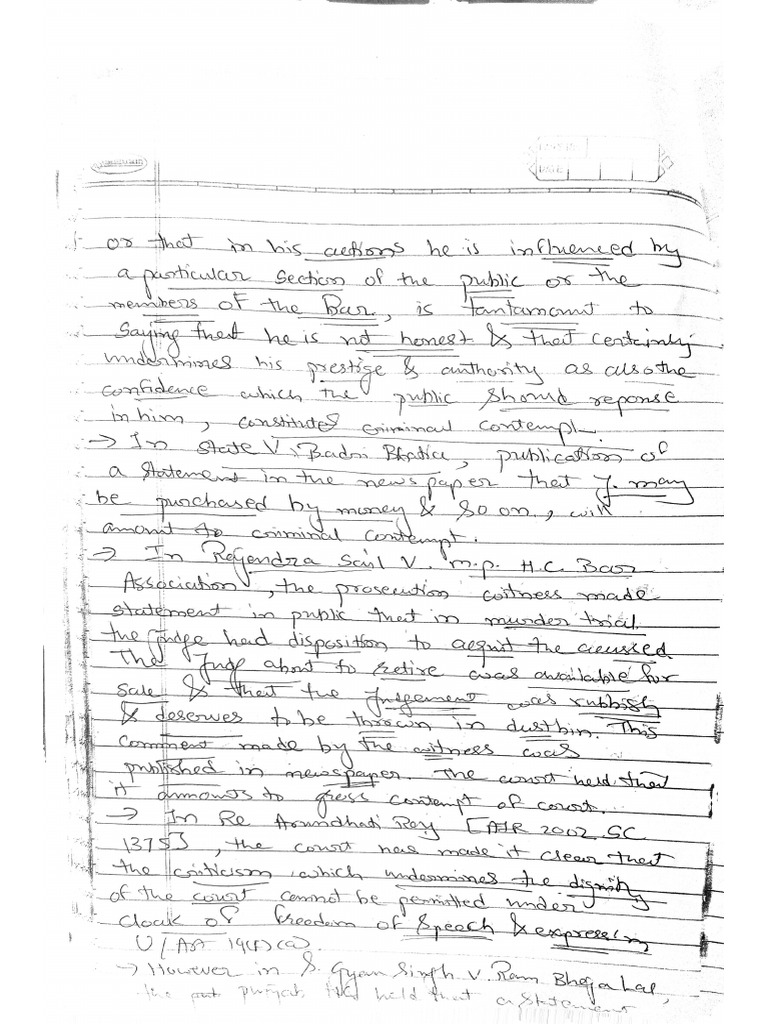 or that in his actions he is influenced by
a particular section of the public or the
members of the Bar, is tantamount to
saying that he is not honest & that certainly
undermines his prestige & authority as also the
confidence which the public should reponse
in him, constitutes criminal contempt.
→ In State V. Badri Bhatia, publication of
a statement in the news paper that J. may
be purchased by money & so on, will
amount to criminal contempt.
→ In Rajendra Sail V. M.P. H.C. Bar
Association, the prosecution witness made
statement in public that in murder trial
the judge had disposition to acquit the accused
The Judge about to retire was available for
sale & that the Judgement was rubbish
& deserves to be thrown in dustbin. This
comment made by the witness was
published in newspaper. The court held that
it amounts to gross contempt of court.
→ In Re Arundhati Roy [AIR 2002 SC
1375], the court has made it clear that
the criticism which undermines the dignity
of the court cannot be permitted under
cloak of freedom of speech & expression
U/Art 19(1)(a).
→ However in S. Gyan Singh V. Ram Bheja Lal,
the Punjab held that a statement